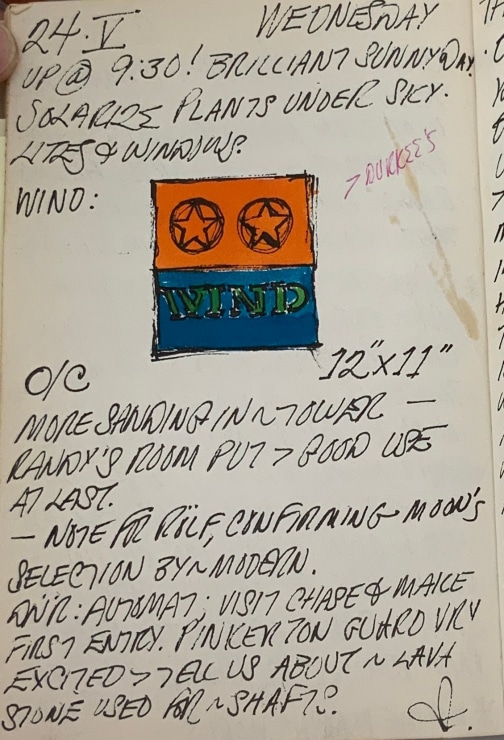 24·V WEDNESDAY
UP @ 9:30! BRILLIANT SUNNY DAY.
SOLARIZE PLANTS UNDER SKY-
LITES & WINDOWS.
> DURKEE'S
WIND:
WIND
12"x11"
O/C
MORE SANDING IN ~ TOWER —
RANDY'S ROOM PUT > GOOD USE
AT LAST.
— NOTE FOR ROLF, CONFIRMING MOON'S
SELECTION BY ~ MODERN.
DNR: AUTOMAT; VISIT CHASE & MAKE
FIRST ENTRY. PINKERTON GUARD VRY
EXCITED > TELL US ABOUT ~ LAVA
STONE USED FOR ~ SHAFTS.